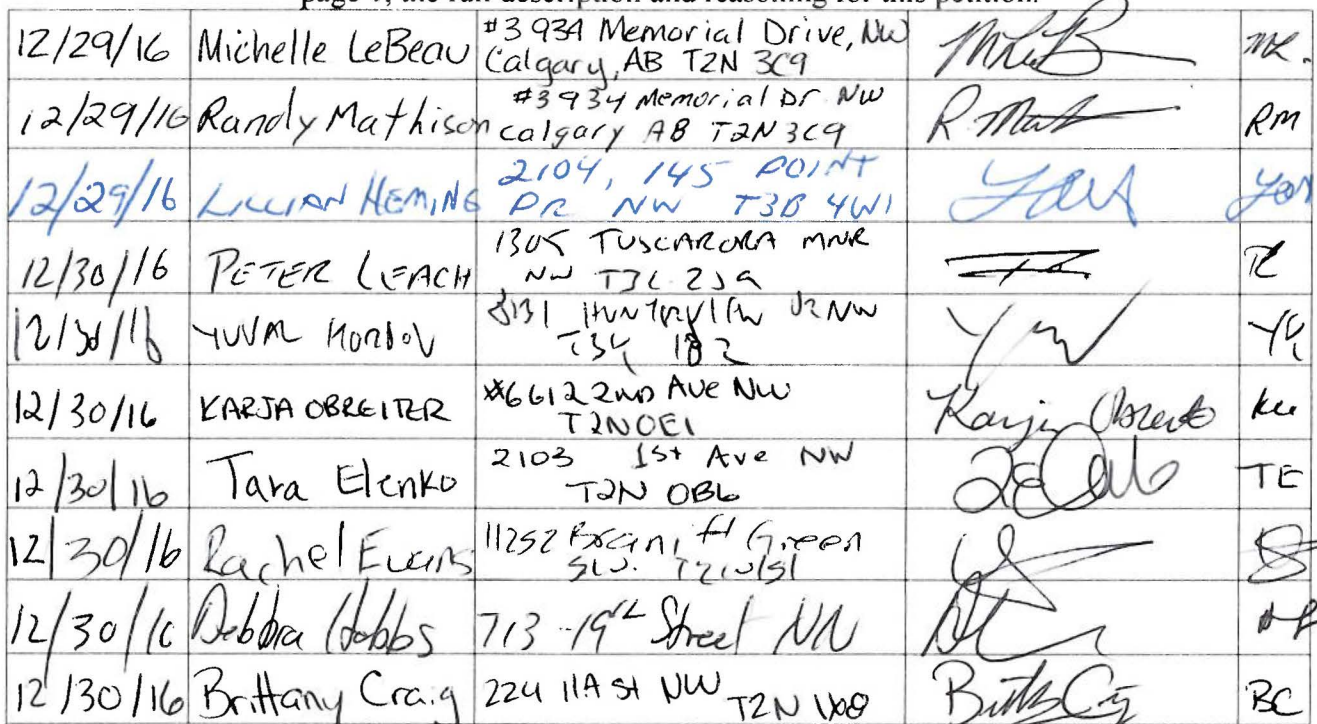 page 1, the full description and reasoning for this petition.
12/29/16 Michelle LeBeau #3 934 Memorial Drive, NW
Calgary, AB T2N 3C9 ML.
12/29/16 Randy Mathison #3 934 Memorial Dr NW
Calgary AB T2N 3C9 RM
12/29/16 LILLIAN HEMING 2104, 145 POINT
DR NW T3B 4W1
12/30/16 PETER LEACH 1305 TUSCARORA MNR
NW T3L 2J9
12/30/16 YUVAL
12/30/16 KARJA OBREITER #6612 2ND AVE NW
T2N0E1
12/30/16 Tara Elenko 2103 1st Ave NW
T2N 0B6 TE
12/30/16 Rachel Evans 11252 Green
S.W.
12/30/16 Debbra Hobbs 713 - 19th Street NW
12/30/16 Brittany Craig 224 11A St NW T2N 1X8 BC